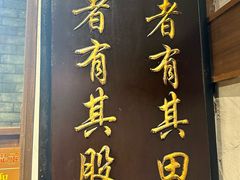 者有其田
者有其股